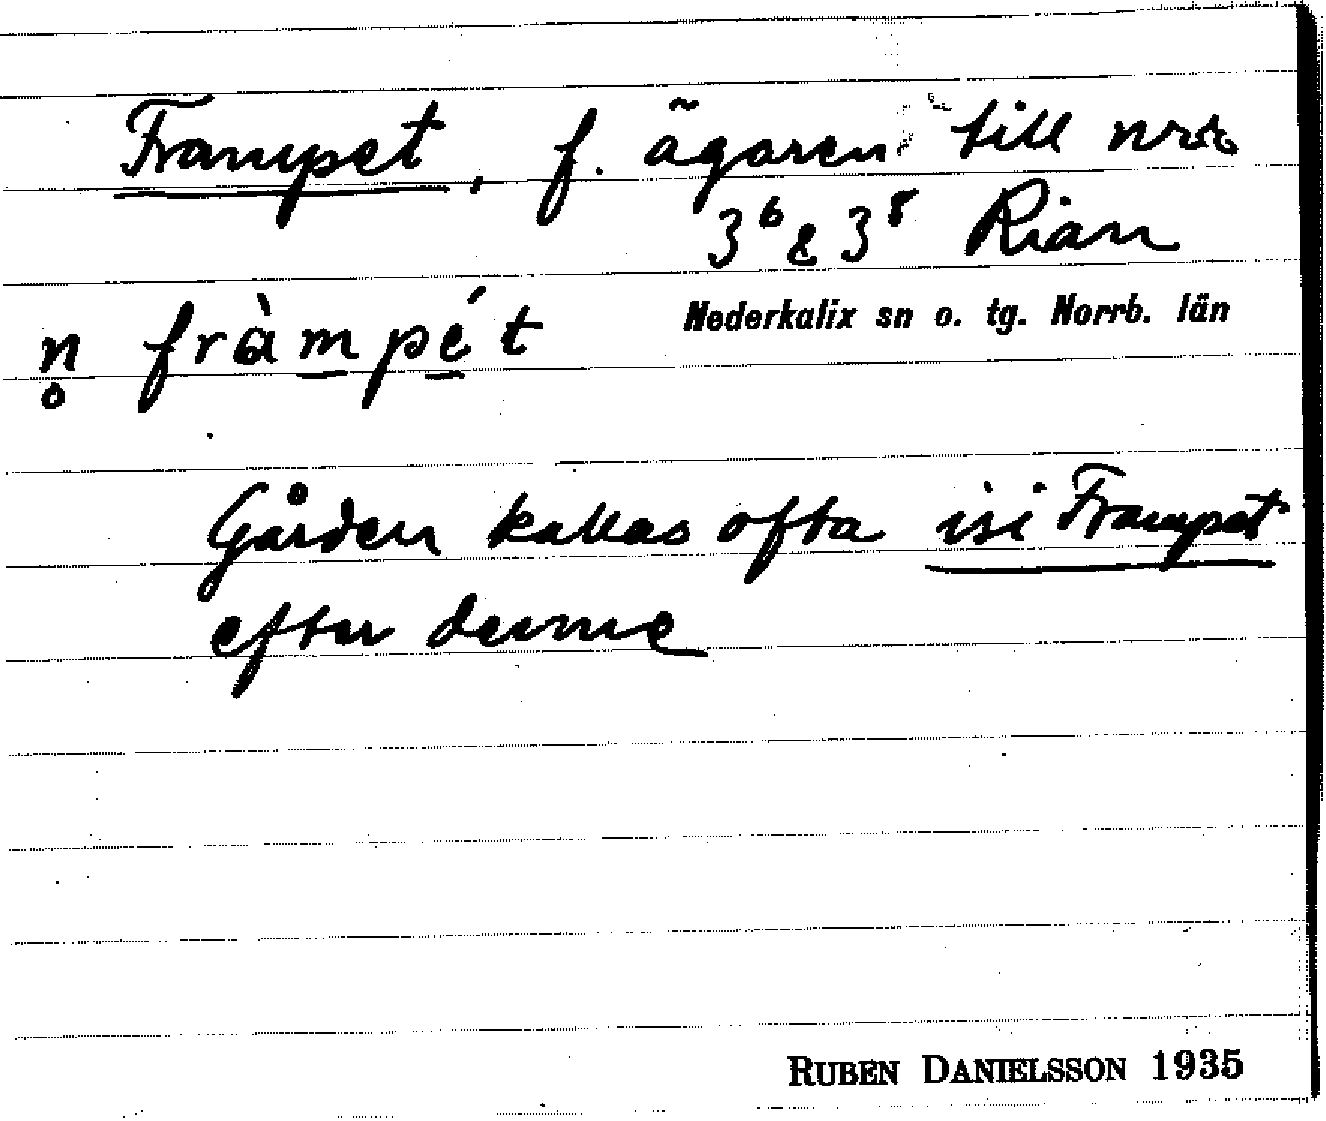 Frampet, f. ägaren till nris
3⁶ & 3⁸ Rian
Nederkalix sn o. tg. Norrb. län
n̥ fràm̲pé̲t
Gården kallas ofta isi Frampet
efter denne
RUBEN DANIELSSON 1935